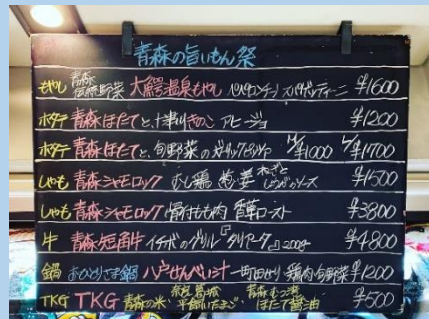 青森の旨いもん祭
もやし 青森伝統野菜 大鰐温泉もやし ペペロンチーノ スパゲッティーニ ¥1600
ホタテ 青森ほたてと、十津川きのこ アヒージョ ¥1200
ホタテ 青森ほたてと、旬野菜の ¥1000 ¥1700
しゃも 青森シャモロック むし鶏 葱姜 ねぎとしょうがのソース ¥1500
しゃも 青森シャモロック 骨付もも肉 香草ロースト ¥3800
牛 青森短角牛 イチボのグリル『タリアータ』200g ¥4800
鍋 おひとりさま鍋 八戸せんべい汁 鶏肉 旬野菜 ¥1200
TKG TKG 青森の米 奈良葛城 平飼いたまご 青森むつ湾 ほたて醤油 ¥500